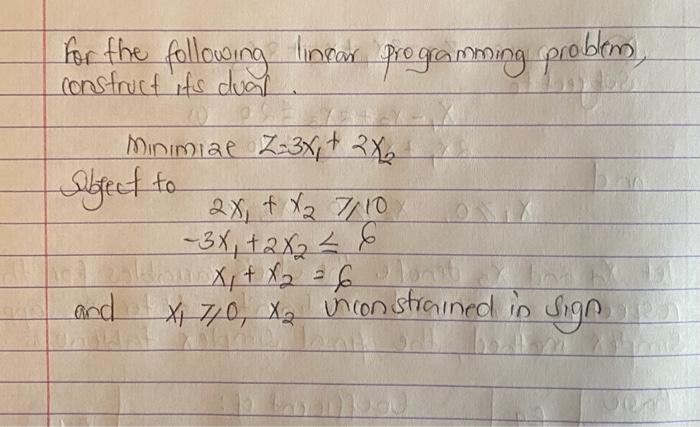 For the following linear programming problem,
construct its dual.
Minimize Z=3x₁ + 2x₂
Subject to
2x₁ + x₂ ≥ 10
-3x₁ + 2x₂ ≤ 6
x₁ + x₂ = 6
and x₁ ≥ 0, x₂ unconstrained in sign